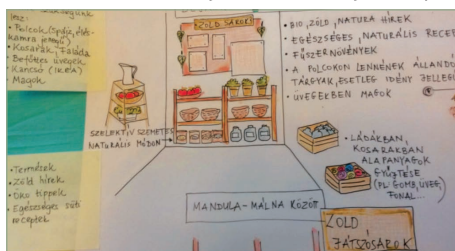 lesz:
• Polcok (spájz, élés-
kamra jellegű)
• Kosarak, Faláda
• Befőttes üvegek
• Kancsó (IKEA)
• Magok
• Termések
• Zöld hírek
• Öko tippek
• Egészséges süti
receptek
ZÖLD SAROK!
SZELEKTÍV SZEMETES
NATURÁLIS MÓDON
• BIO, ZÖLD, NATURA HÍREK
• EGÉSZSÉGES, NATURÁLIS
• FŰSZERNÖVÉNYEK
• A POLCOKON LENNÉNEK ÁLLANDÓ
TÁRGYAK, ESETLEG IDÉNY JELLEGŰ
• ÜVEGEKBEN MAGOK
• LÁDÁKBAN,
KOSARAKBAN
ALAPANYAGOK
GYŰJTÉSE
(PL: GOMB, ÜVEG,
FONAL...)
MANDULA-MÁLNA KÖZÖTT
ZÖLD
JÁTSZÓSAROK